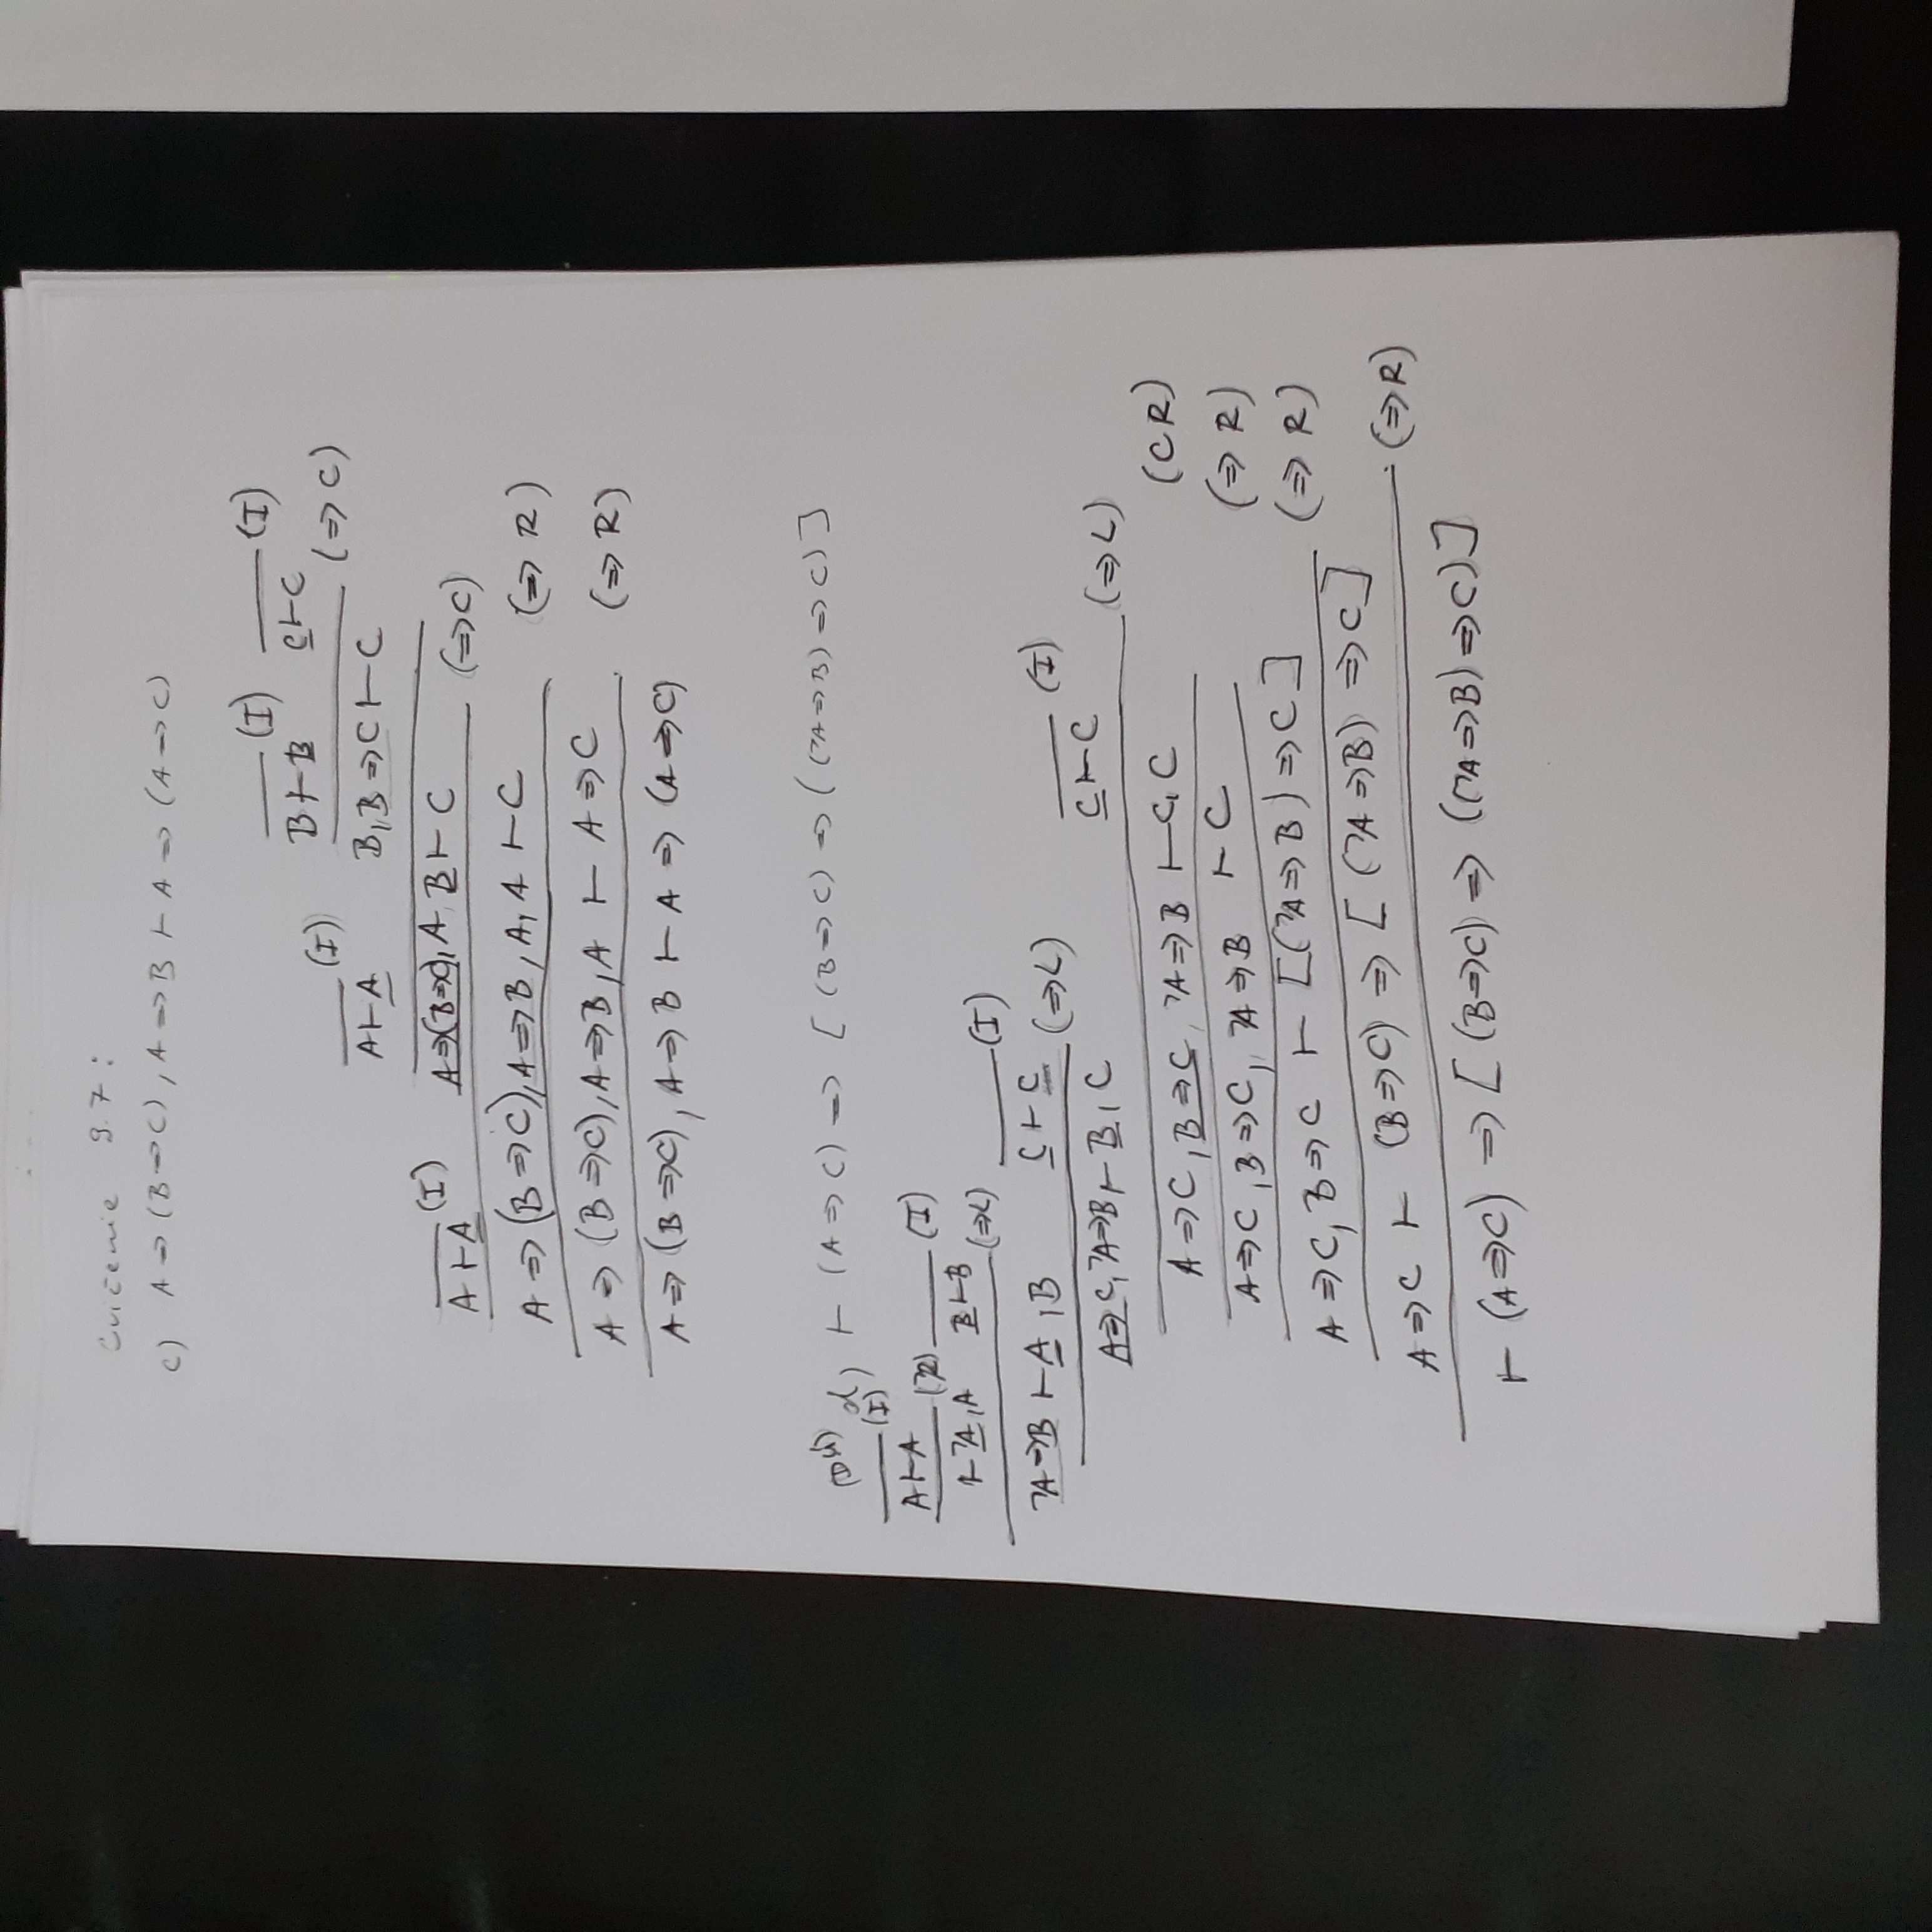 Cvičenie 9.7:
c) A ⇒ (B ⇒ C), A ⇒ B ⊢ A ⇒ (A ⇒ C)
(I) (I)
B ⊢ B C ⊢ C
(I) (⇒ C)
A ⊢ A B, B ⇒ C ⊢ C
(I)
A ⊢ A A ⇒ (B ⇒ C), A, B ⊢ C
(⇒ C)
A ⇒ (B ⇒ C), A ⇒ B, A, A ⊢ C
(⇒ R)
A ⇒ (B ⇒ C), A ⇒ B, A ⊢ A ⇒ C
(⇒ R)
A ⇒ (B ⇒ C), A ⇒ B ⊢ A ⇒ (A ⇒ C)
(DÚ) d) ⊢ (A ⇒ C) ⇒ [(B ⇒ C) ⇒ ((¬A ⇒ B) ⇒ C)]
(I)
A ⊢ A (¬R) (I)
⊢ ¬A, A B ⊢ B
(⇒ L) (I)
¬A ⇒ B ⊢ A, B C ⊢ C
(⇒ L) (I)
A ⇒ C, ¬A ⇒ B ⊢ B, C C ⊢ C
(⇒ L)
A ⇒ C, B ⇒ C, ¬A ⇒ B ⊢ C, C
(CR)
A ⇒ C, B ⇒ C, ¬A ⇒ B ⊢ C
(⇒ R)
A ⇒ C, B ⇒ C ⊢ [(¬A ⇒ B) ⇒ C]
(⇒ R)
A ⇒ C ⊢ (B ⇒ C) ⇒ [(¬A ⇒ B) ⇒ C]
(⇒ R)
⊢ (A ⇒ C) ⇒ [(B ⇒ C) ⇒ ((¬A ⇒ B) ⇒ C)]